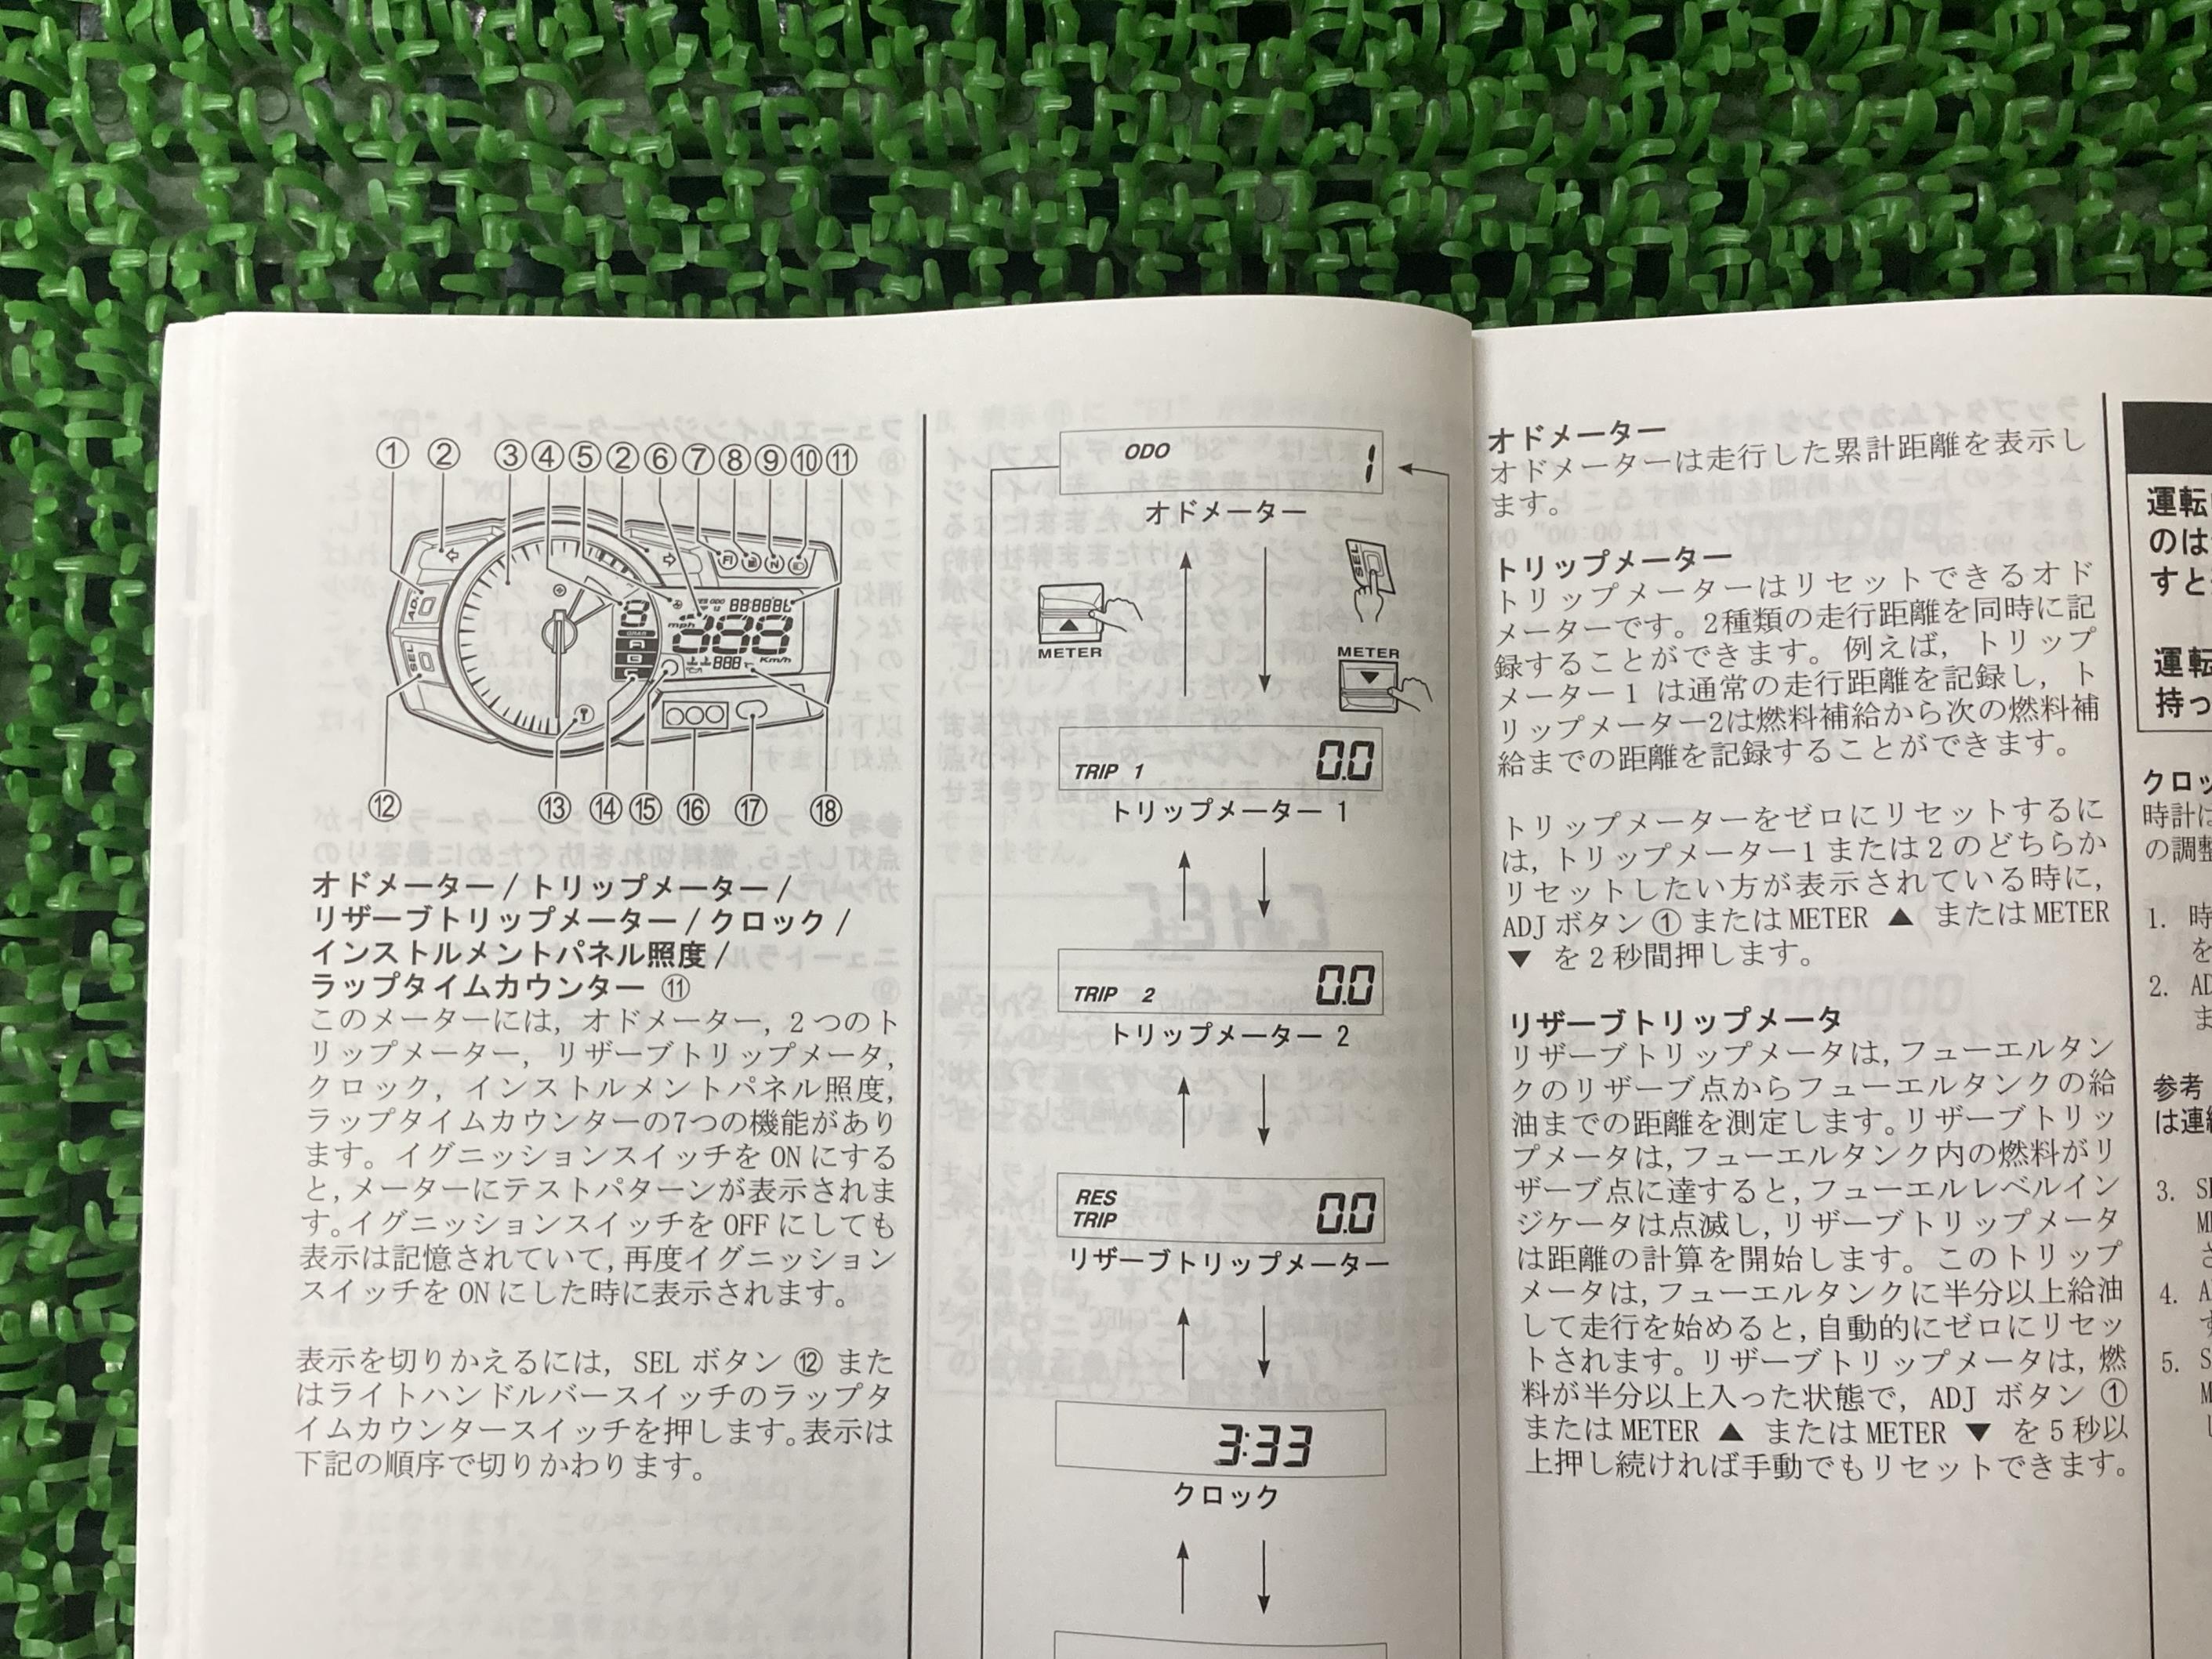 ① ② ③ ④ ⑤ ② ⑥ ⑦ ⑧ ⑨ ⑩ ⑪
ADJ
SEL
mph
km/h
⑫ ⑬ ⑭ ⑮ ⑯ ⑰ ⑱
オドメーター / トリップメーター /
リザーブトリップメーター / クロック /
インストルメントパネル照度 /
ラップタイムカウンター ⑪
このメーターには, オドメーター, 2つのト
リップメーター, リザーブトリップメータ,
クロック, インストルメントパネル照度,
ラップタイムカウンターの7つの機能があり
ます。イグニッションスイッチを ON にする
と, メーターにテストパターンが表示されま
す。イグニッションスイッチを OFF にしても
表示は記憶されていて, 再度イグニッション
スイッチを ON にした時に表示されます。
表示を切りかえるには, SEL ボタン ⑫ また
はライトハンドルバースイッチのラップタ
イムカウンタースイッチを押します。表示は
下記の順序で切りかわります。
ODO 1
オドメーター
SEL
METER
METER
TRIP 1 0.0
トリップメーター 1
TRIP 2 0.0
トリップメーター 2
RES
TRIP 0.0
リザーブトリップメーター
3:33
クロック
オドメーター
オドメーターは走行した累計距離を表示し
ます。
トリップメーター
トリップメーターはリセットできるオド
メーターです。2種類の走行距離を同時に記
録することができます。例えば, トリップ
メーター1 は通常の走行距離を記録し, ト
リップメーター2は燃料補給から次の燃料補
給までの距離を記録することができます。
トリップメーターをゼロにリセットするに
は, トリップメーター1 または2 のどちらか
リセットしたい方が表示されている時に,
ADJ ボタン ① または METER ▲ または METER
▼ を 2 秒間押します。
リザーブトリップメータ
リザーブトリップメータは, フューエルタン
クのリザーブ点からフューエルタンクの給
油までの距離を測定します。リザーブトリッ
プメータは, フューエルタンク内の燃料がリ
ザーブ点に達すると, フューエルレベルイン
ジケータは点滅し, リザーブトリップメータ
は距離の計算を開始します。このトリップ
メータは, フューエルタンクに半分以上給油
して走行を始めると, 自動的にゼロにリセッ
トされます。リザーブトリップメータは, 燃
料が半分以上入った状態で, ADJ ボタン ①
または METER ▲ または METER ▼ を 5 秒以
上押し続ければ手動でもリセットできます。
運転
のは
すと
運転
持っ
クロッ
時計は
の調整
1. 時
を
2. AD
ま
参考
は連続
3. SE
ME
さ
4. A
す
5. S
M
し